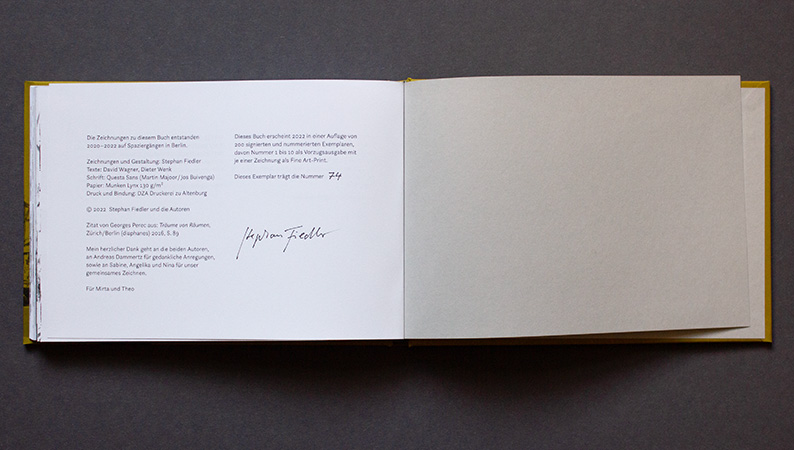 Die Zeichnungen zu diesem Buch entstanden
2020–2022 auf Spaziergängen in Berlin.
Zeichnungen und Gestaltung: Stephan Fiedler
Texte: David Wagner, Dieter Wenk
Schrift: Questa Sans (Martin Majoor / Jos Buivenga)
Papier: Munken Lynx 130 g/m²
Druck und Bindung: DZA Druckerei zu Altenburg
© 2022 Stephan Fiedler und die Autoren
Zitat von Georges Perec aus: Träume von Räumen,
Zürich/Berlin (diaphanes) 2016, S. 89
Mein herzlicher Dank geht an die beiden Autoren,
an Andreas Dammertz für gedankliche Anregungen,
sowie an Sabine, Angelika und Nina für unser
gemeinsames Zeichnen.
Für Mirta und Theo
Dieses Buch erscheint 2022 in einer Auflage von
200 signierten und nummerierten Exemplaren,
davon Nummer 1 bis 10 als Vorzugsausgabe mit
je einer Zeichnung als Fine Art-Print.
Dieses Exemplar trägt die Nummer 74
Stephan Fiedler